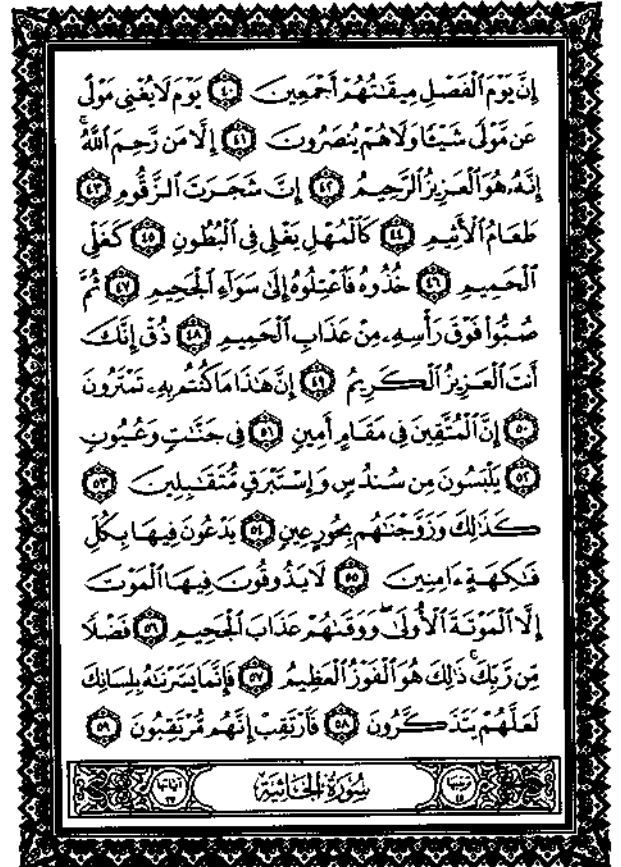 إِنَّ يَوْمَ ٱلْفَصْلِ مِيقَـٰتُهُمْ أَجْمَعِينَ ٤٠ يَوْمَ لَا يُغْنِى مَوْلًى
عَن مَّوْلًى شَيْـًٔا وَلَا هُمْ يُنصَرُونَ ٤١ إِلَّا مَن رَّحِمَ ٱللَّهُ ۚ
إِنَّهُۥ هُوَ ٱلْعَزِيزُ ٱلرَّحِيمُ ٤٢ إِنَّ شَجَرَتَ ٱلزَّقُّومِ ٤٣
طَعَامُ ٱلْأَثِيمِ ٤٤ كَٱلْمُهْلِ يَغْلِى فِى ٱلْبُطُونِ ٤٥ كَغَلْىِ
ٱلْحَمِيمِ ٤٦ خُذُوهُ فَٱعْتِلُوهُ إِلَىٰ سَوَآءِ ٱلْجَحِيمِ ٤٧ ثُمَّ
صُبُّوا۟ فَوْقَ رَأْسِهِۦ مِنْ عَذَابِ ٱلْحَمِيمِ ٤٨ ذُقْ إِنَّكَ
أَنتَ ٱلْعَزِيزُ ٱلْكَرِيمُ ٤٩ إِنَّ هَـٰذَا مَا كُنتُم بِهِۦ تَمْتَرُونَ
٥٠ إِنَّ ٱلْمُتَّقِينَ فِى مَقَامٍ أَمِينٍ ٥١ فِى جَنَّـٰتٍ وَعُيُونٍ
٥٢ يَلْبَسُونَ مِن سُندُسٍ وَإِسْتَبْرَقٍ مُّتَقَـٰبِلِينَ ٥٣
كَذَٰلِكَ وَزَوَّجْنَـٰهُم بِحُورٍ عِينٍ ٥٤ يَدْعُونَ فِيهَا بِكُلِّ
فَـٰكِهَةٍ ءَامِنِينَ ٥٥ لَا يَذُوقُونَ فِيهَا ٱلْمَوْتَ
إِلَّا ٱلْمَوْتَةَ ٱلْأُولَىٰ ۖ وَوَقَىٰهُمْ عَذَابَ ٱلْجَحِيمِ ٥٦ فَضْلًا
مِّن رَّبِّكَ ۚ ذَٰلِكَ هُوَ ٱلْفَوْزُ ٱلْعَظِيمُ ٥٧ فَإِنَّمَا يَسَّرْنَـٰهُ بِلِسَانِكَ
لَعَلَّهُمْ يَتَذَكَّرُونَ ٥٨ فَٱرْتَقِبْ إِنَّهُم مُّرْتَقِبُونَ ٥٩
ترتيبها ٤٥ سُورَةُ الجَاثِيَة آياتها ٣٧